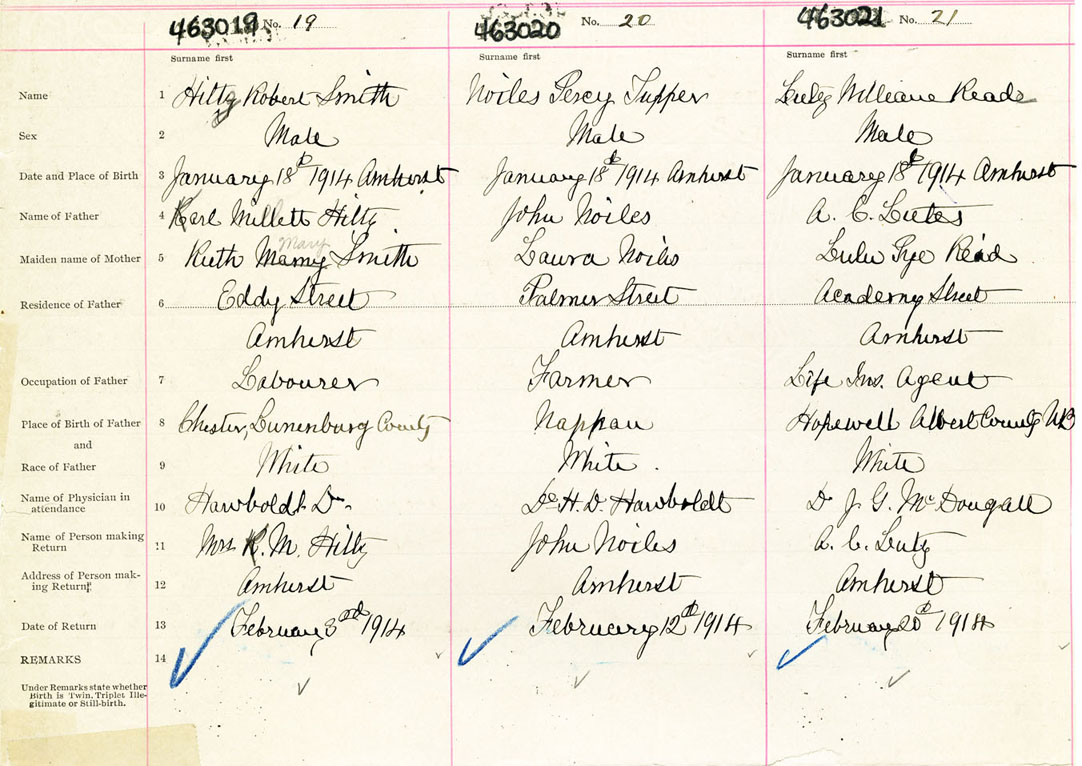 463019 No. 19 463020 No. 20 463021 No. 21
Surname first Surname first Surname first
Name 1 Hilty Robert Smith Noiles Percy Tupper Lutz William Reade
Sex 2 Male Male Male
Date and Place of Birth 3 January 18th 1914 Amherst January 18th 1914 Amherst January 18th 1914 Amherst
Name of Father 4 Karl Millett Hilty John Noiles A. C. Lutes
Mary
Maiden name of Mother 5 Ruth Smith Laura Noiles Lulu Pye Read
Residence of Father 6 Eddy Street Palmer Street Academy Street
Amherst Amherst Amherst
Occupation of Father 7 Labourer Farmer Life Ins. Agent
Place of Birth of Father 8 Chester, Lunenburg County Nappan Hopewell Albert County NB
and
Race of Father 9 White White White
Name of Physician in
attendance 10 Hawboldt Dr Dr H. D. Hawboldt Dr J. G. McDougall
Name of Person making
Return 11 Mrs K. M. Hilty John Noiles A. C. Lutz
Address of Person mak-
ing Return 12 Amherst Amherst Amherst
Date of Return 13 February 3rd 1914 February 12th 1914 February 20th 1914
REMARKS 14
Under Remarks state whether
Birth is Twin, Triplet Ille-
gitimate or Still-birth.